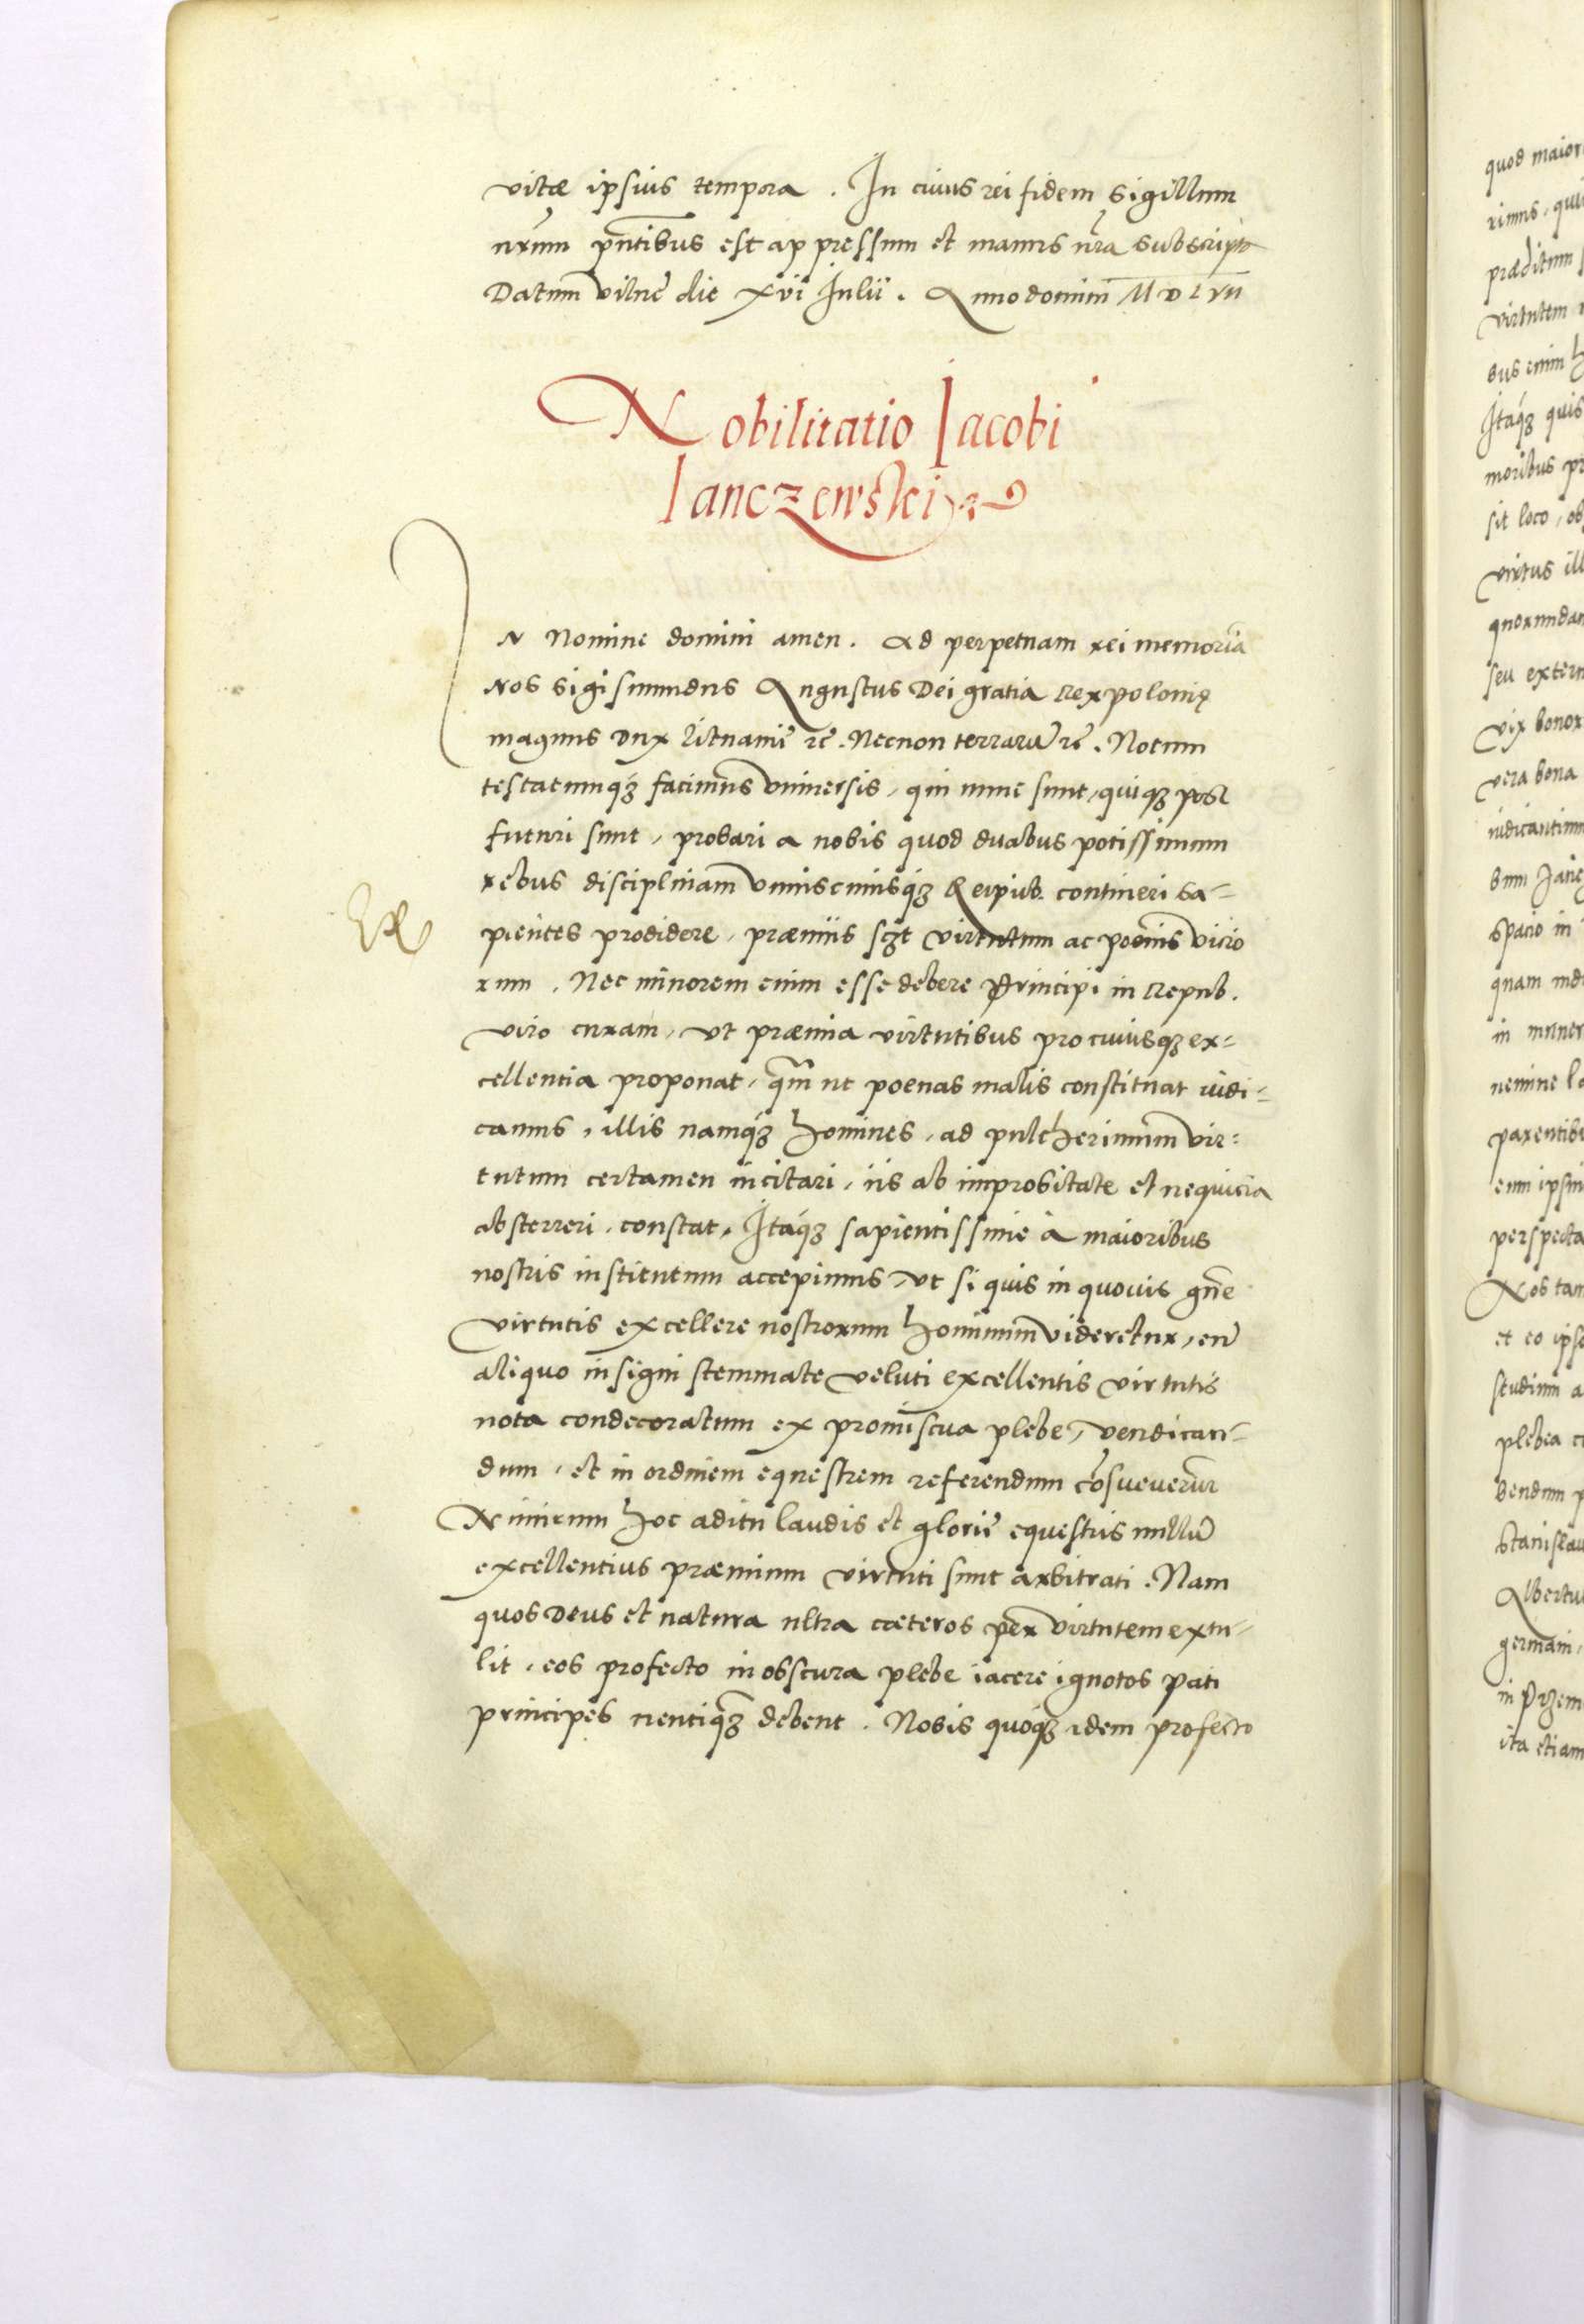 vitæ ipsius tempora . In cuius rei fidem sigillum
nr̄um pn̄tibus est appressum et manus nr̄a subscript
Datum Vilnę die xvi Julii . Anno domini M D L VII
Nobilitatio Jacobi
Janczewski
IN Nomine domini amen . Ad perpetuam rei memoriā
Nos Sigismundus Augustus Dei gratia Rex polonię
magnus Dux Lituanię rc̄ . Necnon terrarū rc̄ . Notum
testatumq₃ facimus Vniversis, qui nunc sunt, quiq₃ post
futuri sunt, probari a nobis quod duabus potissimum
rebus disciplinam Vniuscuiusq₃ Reipub. contineri sa=
pientes prodidere, præmiis sc₃t virtutum ac poenis vicio
rum . Nec minorem enim esse debere Principi in Repub.
viro curam, vt præmia virtutibus pro cuiusq₃ ex=
cellentia proponat, qm̄ ut poenas malis constituat iudi=
camus, illis namq₃ homines, ad pulcherimum vir=
tutum certamen incitari, iis ab improbitate et nequicia
absterreri, constat, Itaq₃ sapientissime à maioribus
nostris institutum accepimus, vt si quis in quovis gn̄e
virtutis excellere nostrorum hominum videretur, eū
aliquo insigni stemmate veluti excellentis virtutis
nota condecoratum ex promiscua plebe, vendican=
dum, et in ordinem equestrem referendum cōsueverūt
Nimirum hoc aditu laudis et glorię equestris nullū
excellentius præmium virtuti sunt arbitrati . Nam
quos Deus et natura ultra cæteros per virtutem extu=
lit, eos profecto in obscura plebe iacere ignotos pati
principes neutiq₃ debent . Nobis quoq₃ idem profecto
quod maior
rimus, qui
præditum
virtutem
bus enim h
Itaq₃ quis
moribus pr
sit loco, ob
virtus ill
quorundam
seu extern
vix bonor
vera bona
iudicantium
bum Jancz
spacio in
quam indu
in muner
nemine la
parentibu
eum ipsiu
perspecta
Nos tan
et eo ipso
studium a
plebea c
bendum p
Stanislau
Albertu
germani,
in Przem
ita etiam